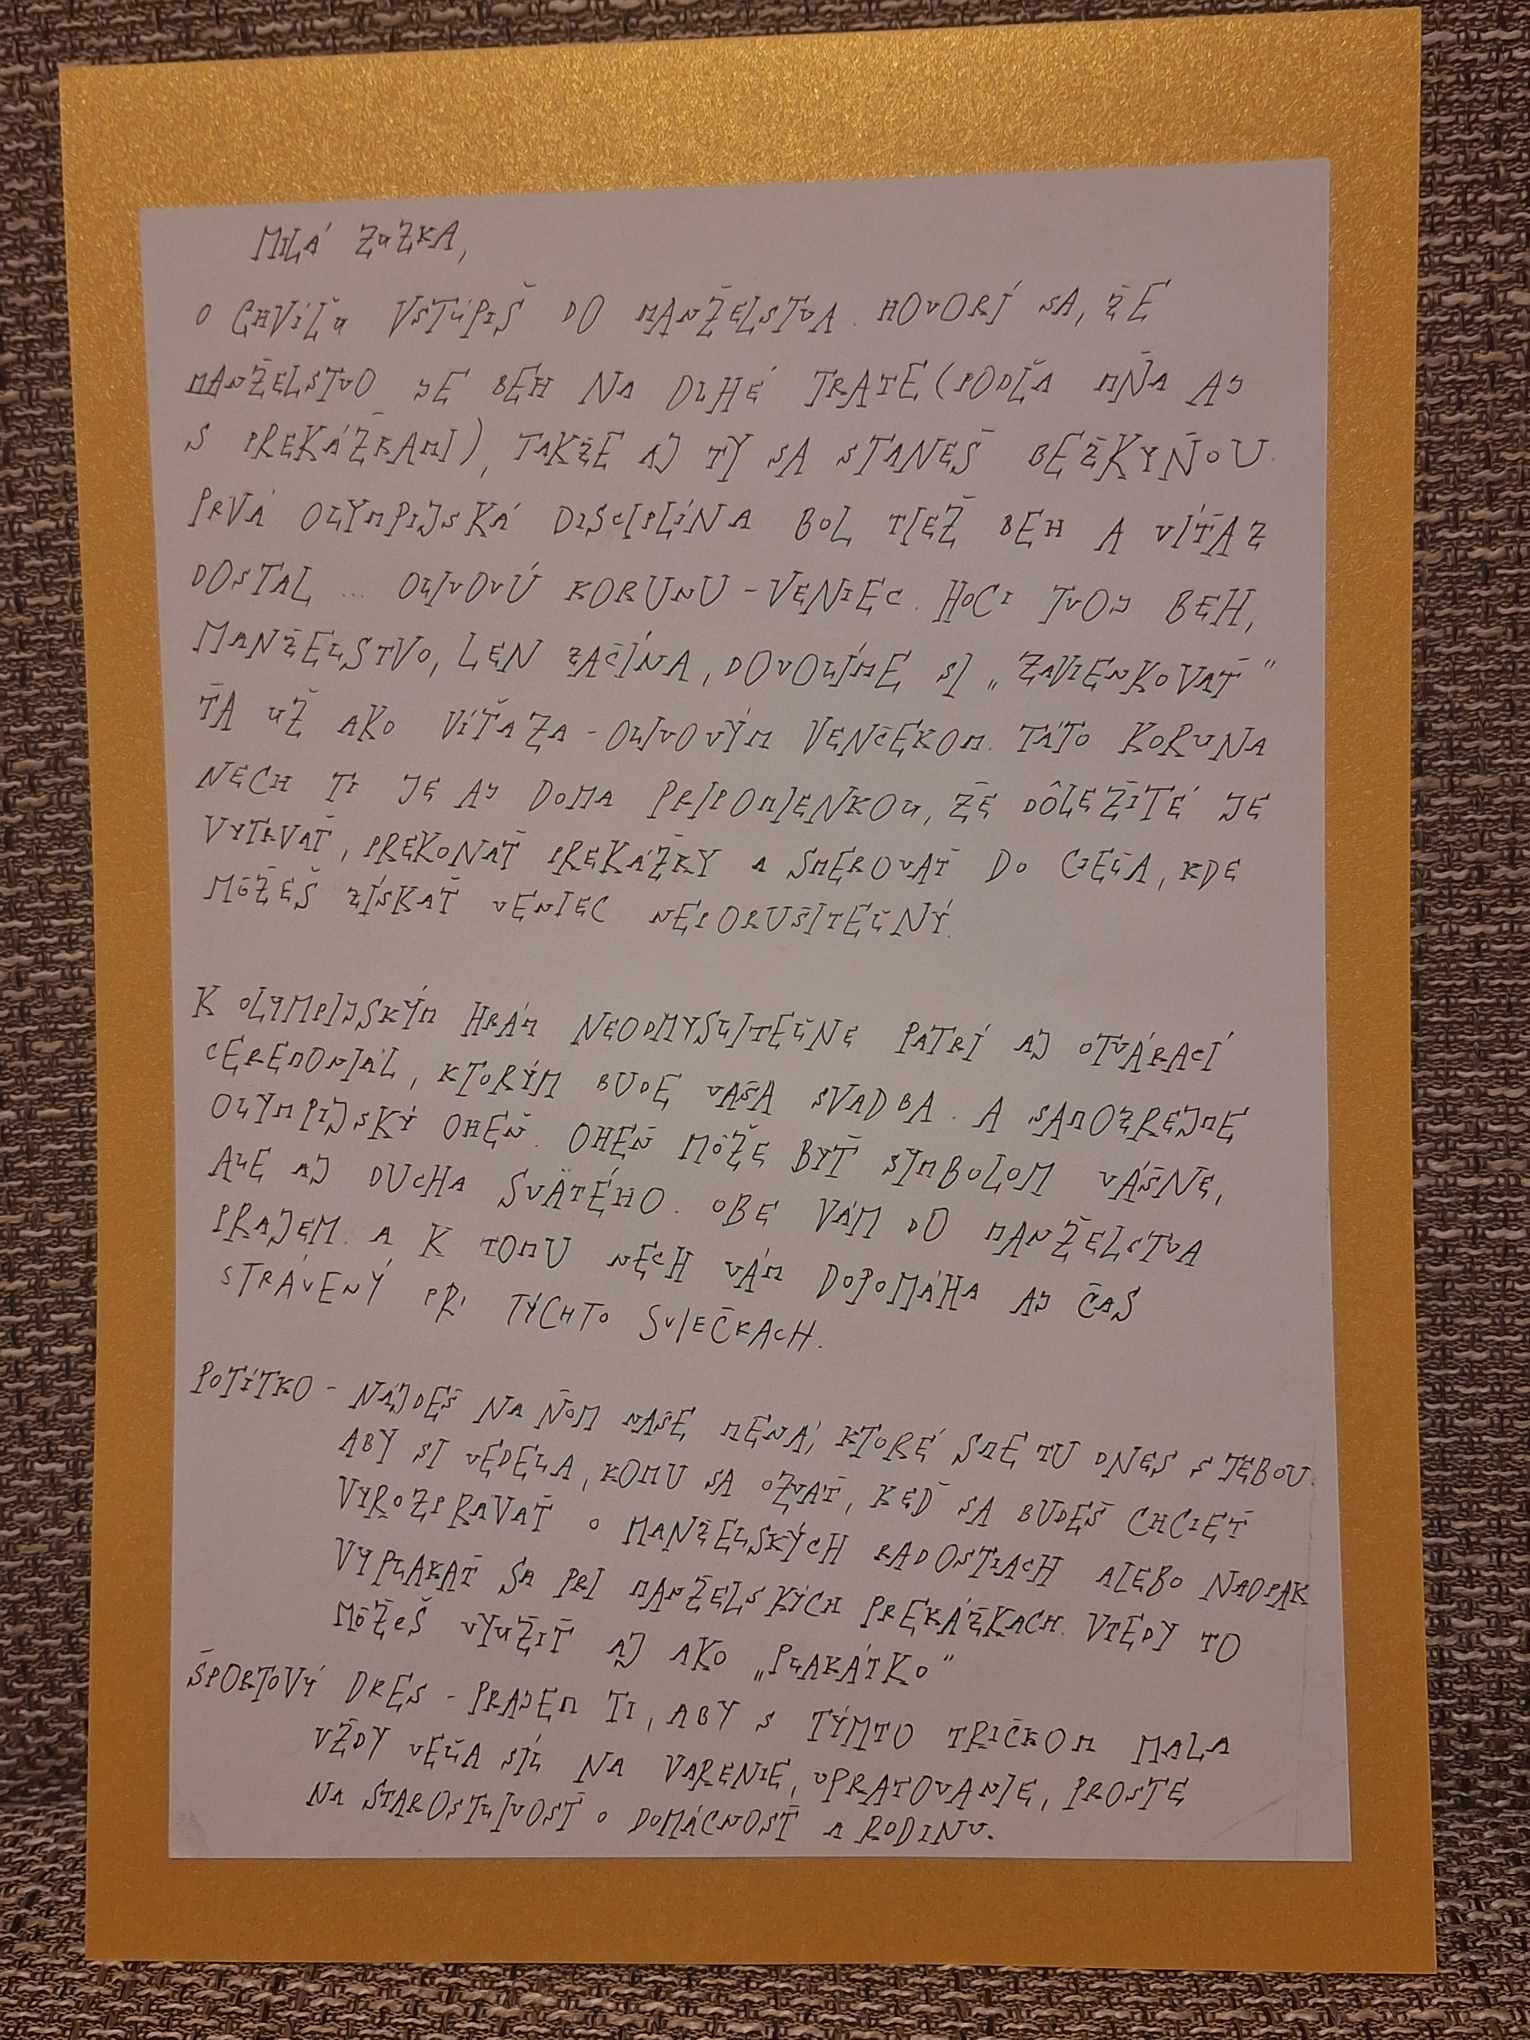 MILÁ ZUZKA,
O CHVÍĽU VSTÚPIŠ DO MANŽELSTVA. HOVORÍ SA, ŽE
MANŽELSTVO JE BEH NA DLHÉ TRATE (PODĽA MŇA AJ
S PREKÁŽKAMI), TAKŽE AJ TY SA STANEŠ BEŽKYŇOU.
PRVÁ OLYMPIJSKÁ DISCIPLÍNA BOL TIEŽ BEH A VÍŤAZ
DOSTAL ... OLIVOVÚ KORUNU - VENIEC. HOCI TVOJ BEH,
MANŽELSTVO, LEN ZAČÍNA, DOVOLÍME SI „ZAVIENKOVAŤ"
ŤA UŽ AKO VÍŤAZA - OLIVOVÝM VENČEKOM. TÁTO KORUNA
NECH TI JE AJ DOMA PRIPOMIENKOU, ŽE DÔLEŽITÉ JE
VYTRVAŤ, PREKONAŤ PREKÁŽKY A SMEROVAŤ DO CIEĽA, KDE
MÔŽEŠ ZÍSKAŤ VENIEC NEPORUŠITEĽNÝ.
K OLYMPIJSKÝM HRÁM NEODMYSLITEĽNE PATRÍ AJ OTVÁRACÍ
CEREMONIÁL, KTORÝM BUDE VAŠA SVADBA. A SAMOZREJME
OLYMPIJSKÝ OHEŇ. OHEŇ MÔŽE BYŤ SYMBOLOM VÁŠNE,
ALE AJ DUCHA SVÄTÉHO. OBE VÁM DO MANŽELSTVA
PRAJEM. A K TOMU NECH VÁM DOPOMÁHA AJ ČAS
STRÁVENÝ PRI TÝCHTO SVIEČKACH.
POTÍTKO - NÁJDEŠ NA ŇOM NAŠE MENÁ, KTORÉ SME TU DNES S TEBOU.
ABY SI VEDELA, KOMU SA OZVAŤ, KEĎ SA BUDEŠ CHCIEŤ
VYROZPRAVAŤ O MANŽELSKÝCH RADOSTIACH ALEBO NAOPAK
VYPLAKAŤ SA PRI MANŽELSKÝCH PREKÁŽKACH. VTEDY TO
MÔŽEŠ VYUŽIŤ AJ AKO „PLAKÁTKO"
ŠPORTOVÝ DRES - PRAJEM TI, ABY S TÝMTO TRIČKOM MALA
VŽDY VEĽA SÍL NA VARENIE, UPRATOVANIE, PROSTE
NA STAROSTLIVOSŤ O DOMÁCNOSŤ A RODINU.